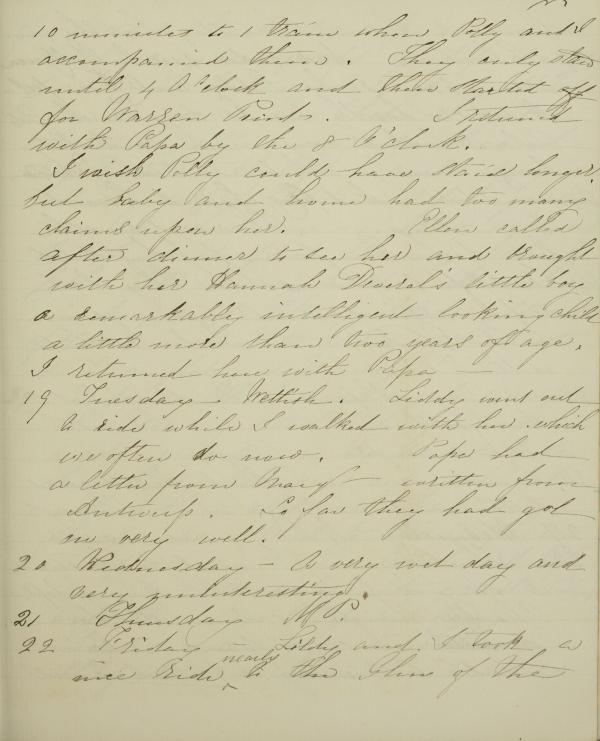 10 minutes to 1 train when Polly and I
accompanied them. They only staid
until 4 O'clock and then started off
for Warren Point. I returned
with Papa by the 8 O'clock.
I wish Polly could have staid longer.
but baby and home had too many
claims upon her. Ellen called
after dinner to see her and brought
with her Hannah Deverel's little boy
a remarkably intelligent looking child
a little more than two years of age.
I returned here with Papa —
19 Tuesday - Wettish. Liddy went out
to ride while I walked with her which
we often do now. Papa had
a letter from Mary - written from
Antwerp. So far they had got
on very well.
20 Wednesday - A very wet day and
very uninteresting.
21 Thursday M P.
22 Friday - Liddy and I took a
nice ride nearly to the Glen of the